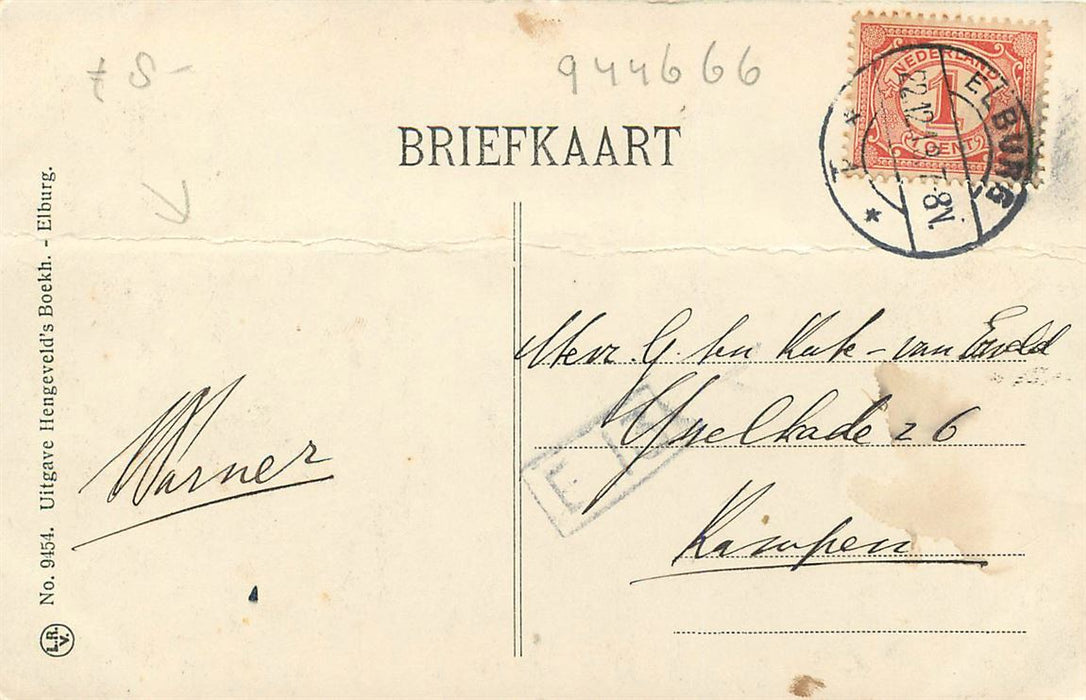 944666
8-
BRIEFKAART
NEDERLAND
1
1 CENT
ELBURG
22.12.19 7-8N
* 1 *
No. 9454. Uitgave Hengeveld's Boekh. - Elburg.
L.R. V.
Warner
Mevr. G. ten Kate - van
IJsselkade 26
Kampen
E